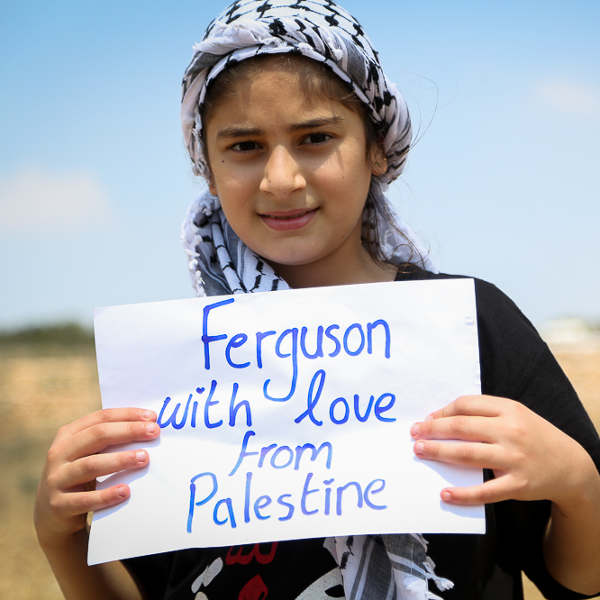 Ferguson
with love
from
Palestine